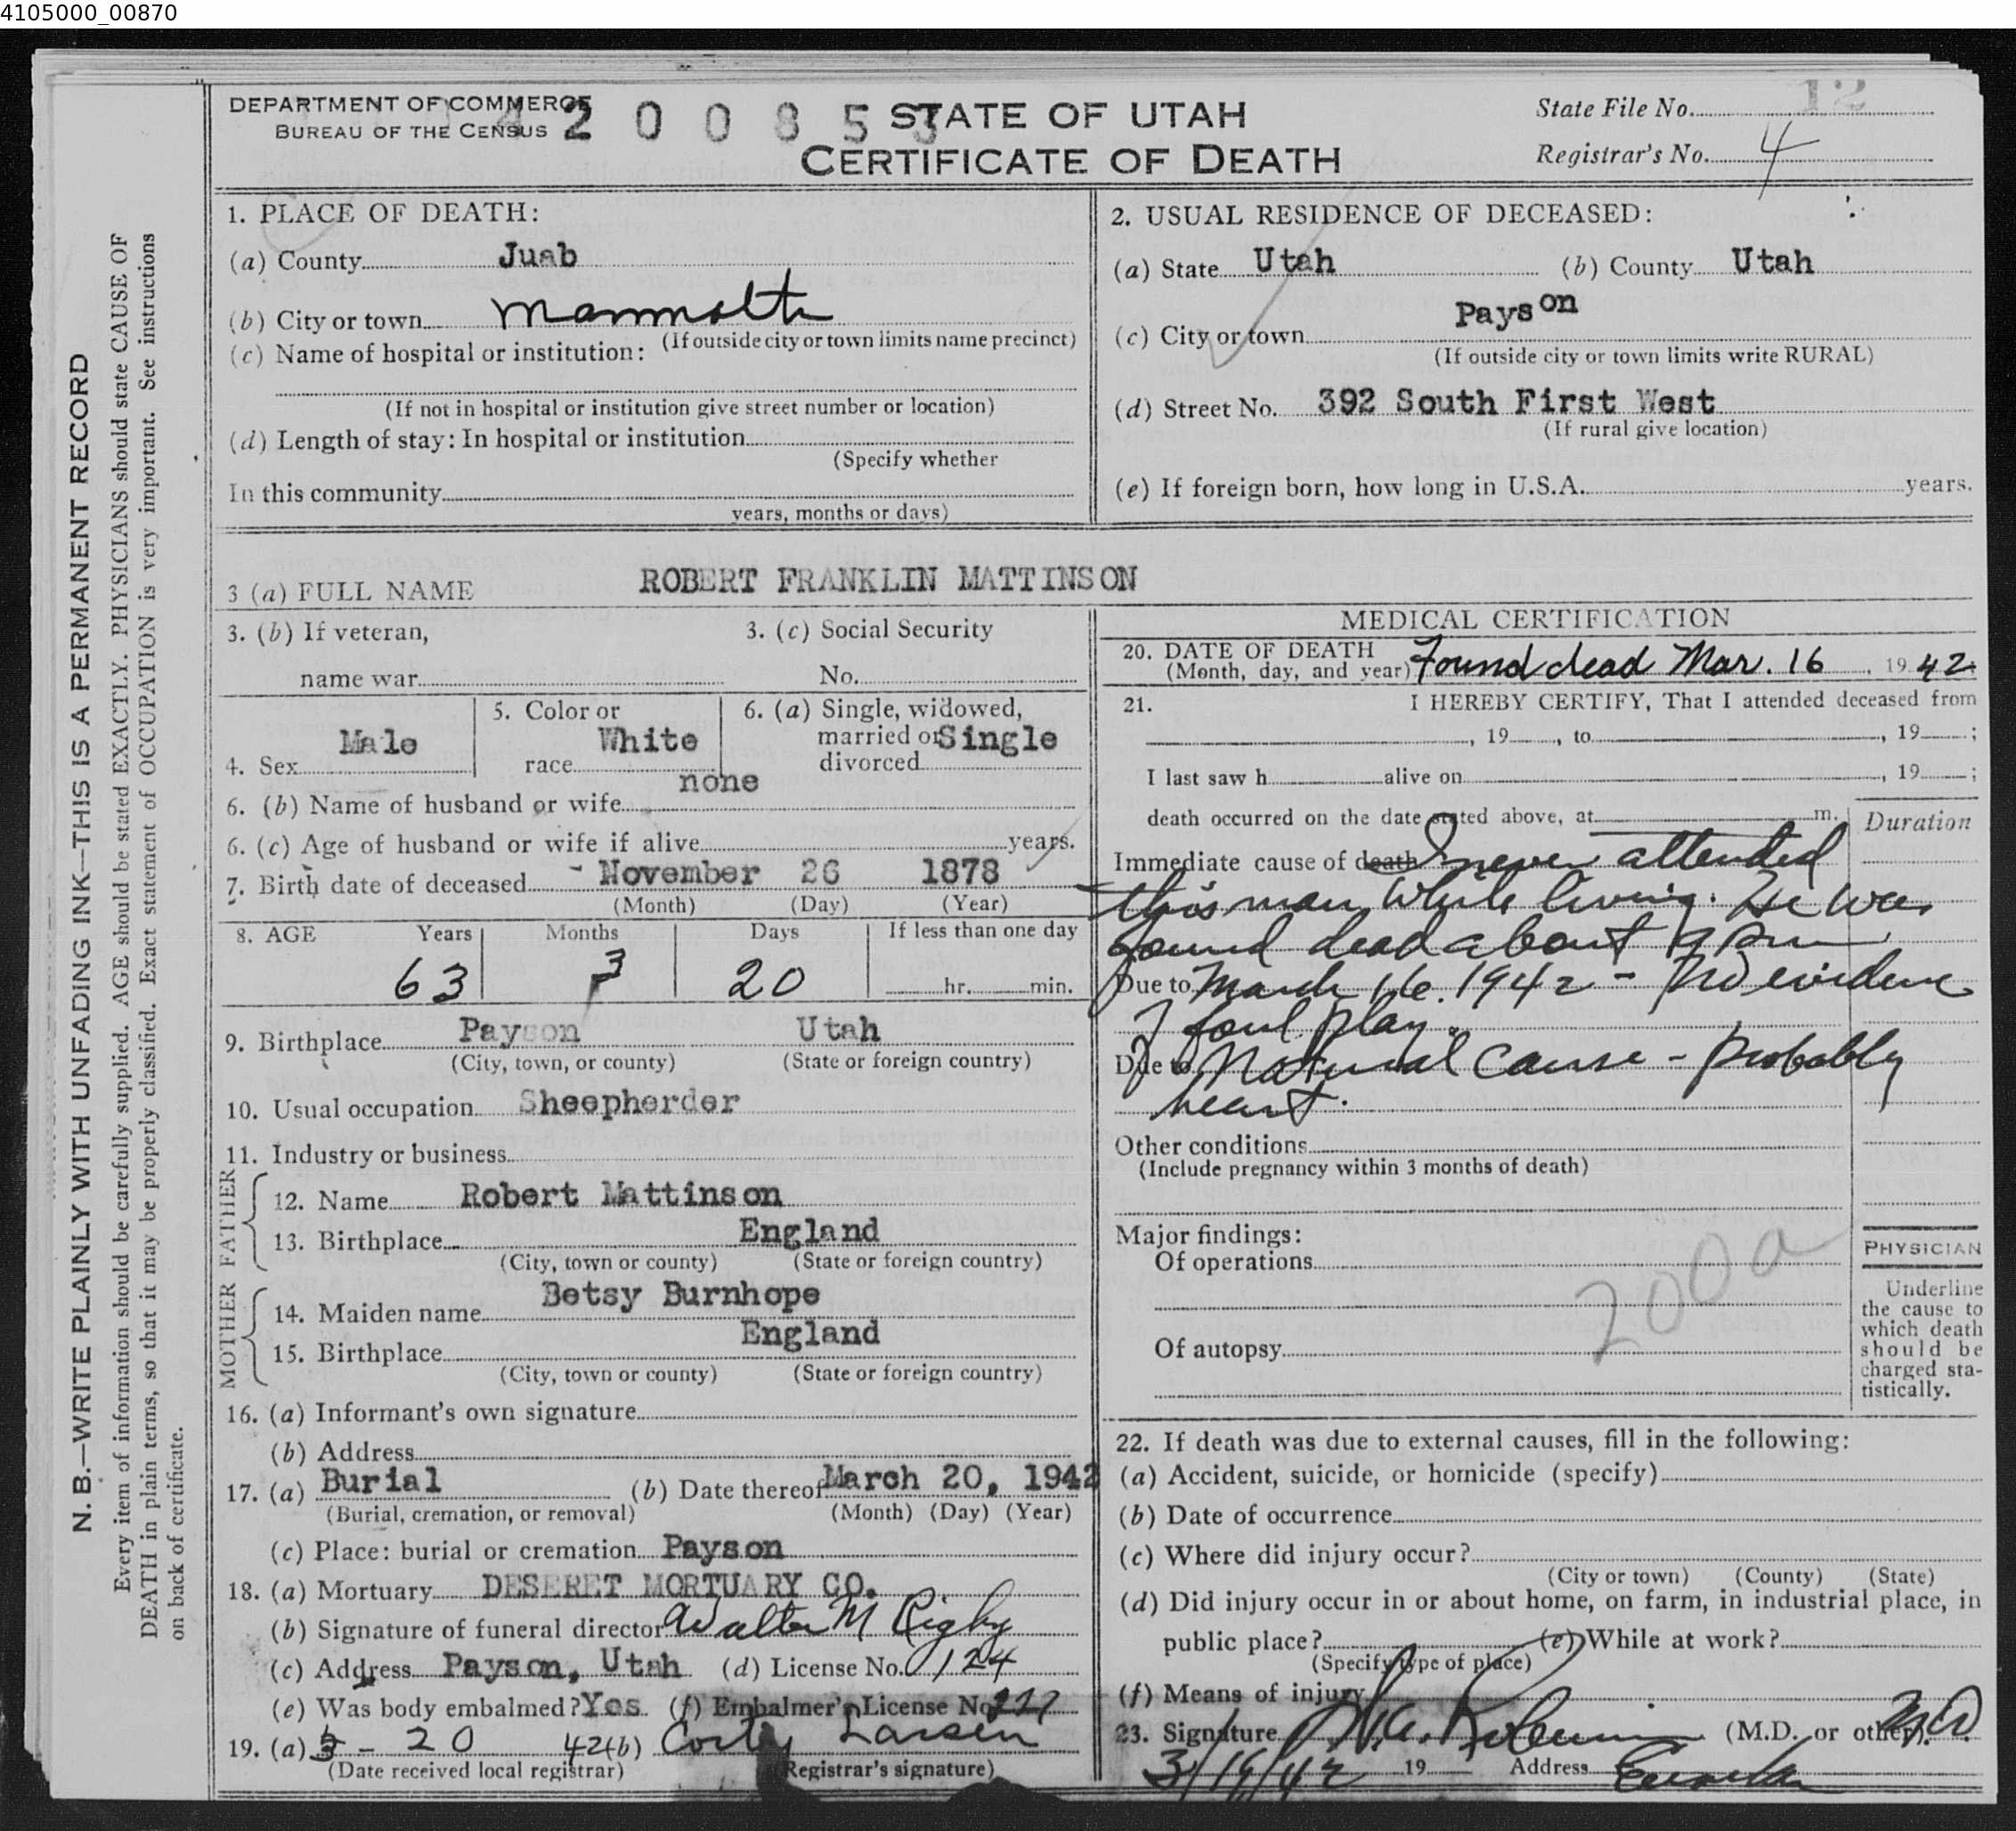 4105000_00870
DEPARTMENT OF COMMERCE
BUREAU OF THE CENSUS
4 2 0 0 8 5 3
STATE OF UTAH
CERTIFICATE OF DEATH
State File No. 12
Registrar's No. 4
N. B.—WRITE PLAINLY WITH UNFADING INK—THIS IS A PERMANENT RECORD
Every item of information should be carefully supplied. AGE should be stated EXACTLY. PHYSICIANS should state CAUSE OF
DEATH in plain terms, so that it may be properly classified. Exact statement of OCCUPATION is very important. See instructions
on back of certificate.
1. PLACE OF DEATH:
(a) County Juab
(b) City or town Mammoth
(If outside city or town limits name precinct)
(c) Name of hospital or institution:
(If not in hospital or institution give street number or location)
(d) Length of stay: In hospital or institution
(Specify whether
In this community
years, months or days)
2. USUAL RESIDENCE OF DECEASED:
(a) State Utah (b) County Utah
(c) City or town Payson
(If outside city or town limits write RURAL)
(d) Street No. 392 South First West
(If rural give location)
(e) If foreign born, how long in U.S.A. years.
3 (a) FULL NAME ROBERT FRANKLIN MATTINSON
3. (b) If veteran,
name war
3. (c) Social Security
No.
4. Sex Male
5. Color or
race White
6. (a) Single, widowed,
married or
divorced Single
6. (b) Name of husband or wife none
6. (c) Age of husband or wife if alive years.
7. Birth date of deceased November 26 1878
(Month) (Day) (Year)
8. AGE Years Months Days If less than one day
63 3 20 hr. min.
9. Birthplace Payson Utah
(City, town, or county) (State or foreign country)
10. Usual occupation Sheepherder
11. Industry or business
FATHER
12. Name Robert Mattinson
13. Birthplace England
(City, town or county) (State or foreign country)
MOTHER
14. Maiden name Betsy Burnhope
15. Birthplace England
(City, town or county) (State or foreign country)
16. (a) Informant's own signature
(b) Address
17. (a) Burial (b) Date thereof March 20, 1942
(Burial, cremation, or removal) (Month) (Day) (Year)
(c) Place: burial or cremation Payson
18. (a) Mortuary DESERET MORTUARY CO.
(b) Signature of funeral director Walter M Rigby
(c) Address Payson, Utah (d) License No. 124
(e) Was body embalmed? Yes (f) Embalmer's License No.
19. (a) 3 - 20 42 (b) Larsen
(Date received local registrar) (Registrar's signature)
MEDICAL CERTIFICATION
20. DATE OF DEATH
(Month, day, and year) Found dead Mar. 16, 1942
21. I HEREBY CERTIFY, That I attended deceased from
, 19 , to , 19 ;
I last saw h alive on , 19 ;
death occurred on the date stated above, at m.
Duration
Immediate cause of death I never attended
this man while living. He was
found dead about 9 pm
Due to March 16. 1942 - No evidence
of foul play.
Due to Natural cause - probably
heart.
Other conditions
(Include pregnancy within 3 months of death)
Major findings:
Of operations
200a
Of autopsy
PHYSICIAN
Underline
the cause to
which death
should be
charged sta-
tistically.
22. If death was due to external causes, fill in the following:
(a) Accident, suicide, or homicide (specify)
(b) Date of occurrence
(c) Where did injury occur?
(City or town) (County) (State)
(d) Did injury occur in or about home, on farm, in industrial place, in
public place? (e) While at work?
(Specify type of place)
(f) Means of injury
23. Signature (M.D. or other) M.D.
3/19/42 19 Address Eureka